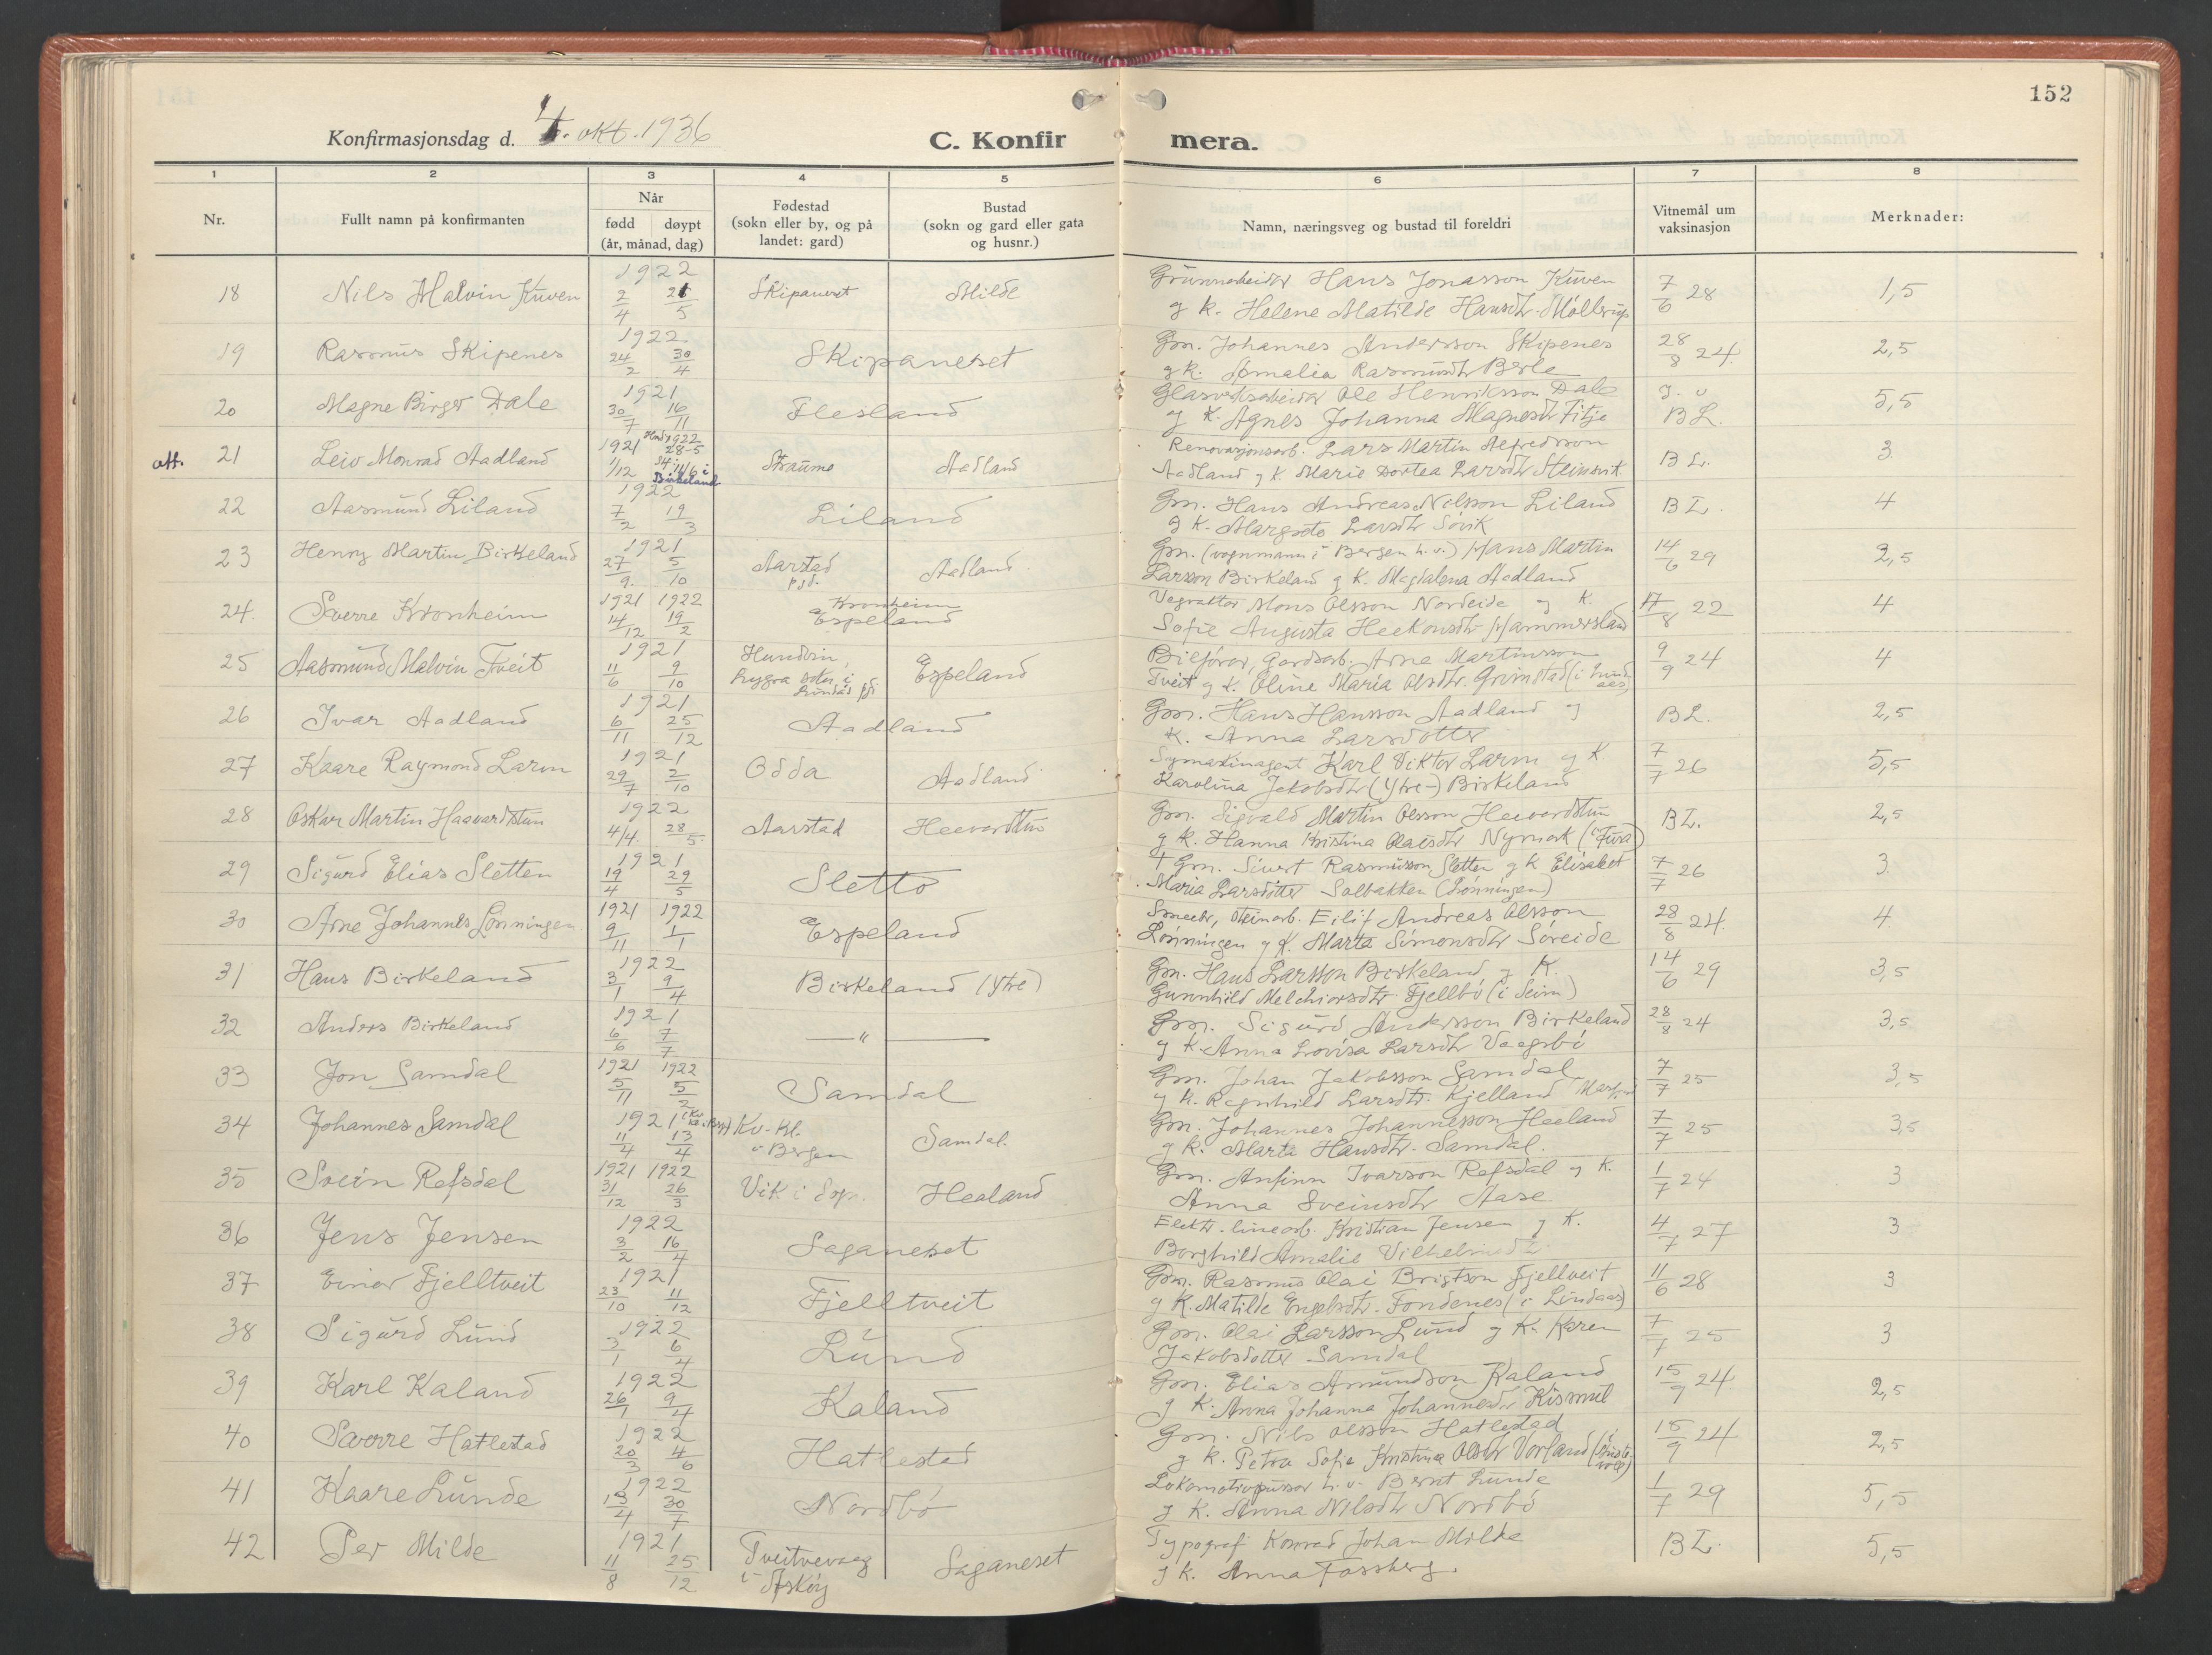 152
Konfirmasjonsdag d. 4. okt. 1936
C. Konfirmera.
1 2 3 4 5 6 7 8
Nr.
Fullt namn på konfirmanten
Når
fødd døypt
(år, månad, dag)
Fødestad
(sokn eller by, og på
landet: gard)
Bustad
(sokn og gard eller gata
og husnr.)
Namn, næringsveg og bustad til foreldri
Vitnemål um
vaksinasjon
Merknader:
18 Nils Malvin Kuven 1922 2/4 21/5 Skipaneset Milde Grunnarbeidar Hans Jonasson Kuven 7/6 28 1,5
g k. Helene Matilde Hansdtr. Møllerup
19 Rasmus Skipenes 1922 24/2 30/4 Skipaneset Gm. Johannes Andersson Skipenes 28/8 24. 2,5
g k. Amalia Rasmusdtr Berle
20 Magne Birger Dale 1921 30/7 16/11 Flesland Glasverksarbeidar Ole Henriksson Dale 5,5
g K. Agnes Johanna Magnesdtr Fitje B L.
att. 21 Leiv Monrad Aadland 1921 1/12 1922 28-5 St. i Birkeland Straume Aadland Renovasjonsarb. Lars Martin Alfredsson B L. 3.
Aadland g K. Marie Dortea Larsdtr Steinsvik
22 Aasmund Liland 1922 7/2 19/3 Liland Gm. Hans Andreas Nilsson Liland B L. 4
g K. Margreta Larsdtr Søvik
23 Henry Martin Birkeland 1921 27/9. 5/10 Aarstad psd. Aadland Gm. (vognmann i Bergen h. v.) Hans Martin 14/6 29 2,5
Larsson Birkeland g K. Magdalena Aadland
24. Sverre Kronheim 1921 14/12 1922 19/2 Kronheim Espeland Vegvaktar Mons Olsson Nordeide g K. 17/8 22 4
Sofie Augusta Haakonsdtr Hammersland
25 Aasmund Malvin Tveit 1921 11/6 9/10 Hundvin, Lygra sokn i Lindås psd. Espeland Bilførar, Gardsarb. Arne Martinsson 9/9 24 4
Tveit g K. Oline Maria Olsdtr. Grimstad (i Lindaas)
26 Ivar Aadland 1921 6/11 25/12 Aadland Gm. Hans Hansson Aadland g B L. 2,5
K. Anna Larsdotter
27 Kaare Raymond Larm 1921 29/7 2/10 Odda Aadland Symaskinagent Karl Viktor Larm g K 7/7 26 5,5
Karolina Jakobsdtr (Ytre-) Birkeland
28 Oskar Martin Haavardstun 1922 4/4. 28/5. Aarstad Haavardstun Gm. Sigvald Martin Olsson Haavardstun B L. 2,5
g K. Hanna Kristina Olaisdtr Nymark (i Fusa)
29 Sigurd Elias Sletten 1921 19/4 29/5 Sletto † Gm. Sivert Rasmusson Sletten g K Elisabet 7/7 26 3.
Maria Larsdotter Solbakken (Lønningen)
30 Arne Johannes Lønningen 1921 9/11 1922 1/1 Espeland Smaabr, steinarb. Eilif Andreas Olsson 28/8 24. 4.
Lønningen g K. Marta Simonsdtr Søreide
31 Hans Birkeland 1922 3/1 9/4 Birkeland (Ytre) Gm. Hans Larsson Birkeland g K. 14/6 29 3,5
Gunnhild Melchiorsdtr Fjellbø (i Seim)
32 Anders Birkeland 1921 6/6 7/7 — " — Gm. Sigurd Andersson Birkeland 28/8 24 3,5
g K Anna Lovisa Larsdtr Vaagsbø
33 Jon Samdal 1921 5/11 1922 5/2 Samdal Gm. Johan Jakobsson Samdal 7/7 25 3,5
g K. Ragnhild Larsdtr. Kjelland
34 Johannes Samdal 1921 11/4 13/4 Kv.-Kl. i Bergen Samdal. Gm. Johannes Johannesson Haaland 7/7 25 3,5
g K. Marta Hansdtr. Samdal.
35 Svein Refsdal 1921 31/12 1922 26/3 Vik i Sogn. Haaland Gm. Anfinn Ivarson Refsdal g K. 1/7 24 3
Anna Sveinsdtr Aase
36 Jens Jensen 1922 3/2 16/4 Saganeset Elektr. linearb. Kristian Jensen g K. 4/7 27 3
Borghild Amalie Vilhelmsdtr
37 Einar Fjelltveit 1921 23/10 11/12 Fjelltveit Gm. Rasmus Olai Brigtson Fjellveit 11/6 28 3
g K. Matilde Engelsdtr. Fondenes (i Lindaas)
38 Sigurd Lund 1922 3/1 6/4 Lund Gm. Olai Larsson Lund g K. Karen 7/7 25 3
Jakobsdotter Samdal
39 Karl Kaland 1922 26/1 9/4 Kaland Gm. Elias Amundson Kaland 15/9 24 2,5
g K. Anna Johanna Johannesdtr Kismul
40 Sverre Hatlestad 1922 20/3 4/6 Hatlestad Gm. Nils Olsson Hatlestad 15/9 24 2,5
g k. Petra Sofie Kristina Olsdtr Vorland
41 Kaare Lunde 1922 13/4 30/7 Nordbø Lokomotivpussar h. v. Bernt Lunde 1/7 29 5,5
g K. Anna Nilsdtr Nordbø
42 Per Milde 1921 11/8 25/12 Tveitevaag i Askøy Saganeset Typograf Konrad Johan Milde B L. 5,5
g k. Anna Fossberg.